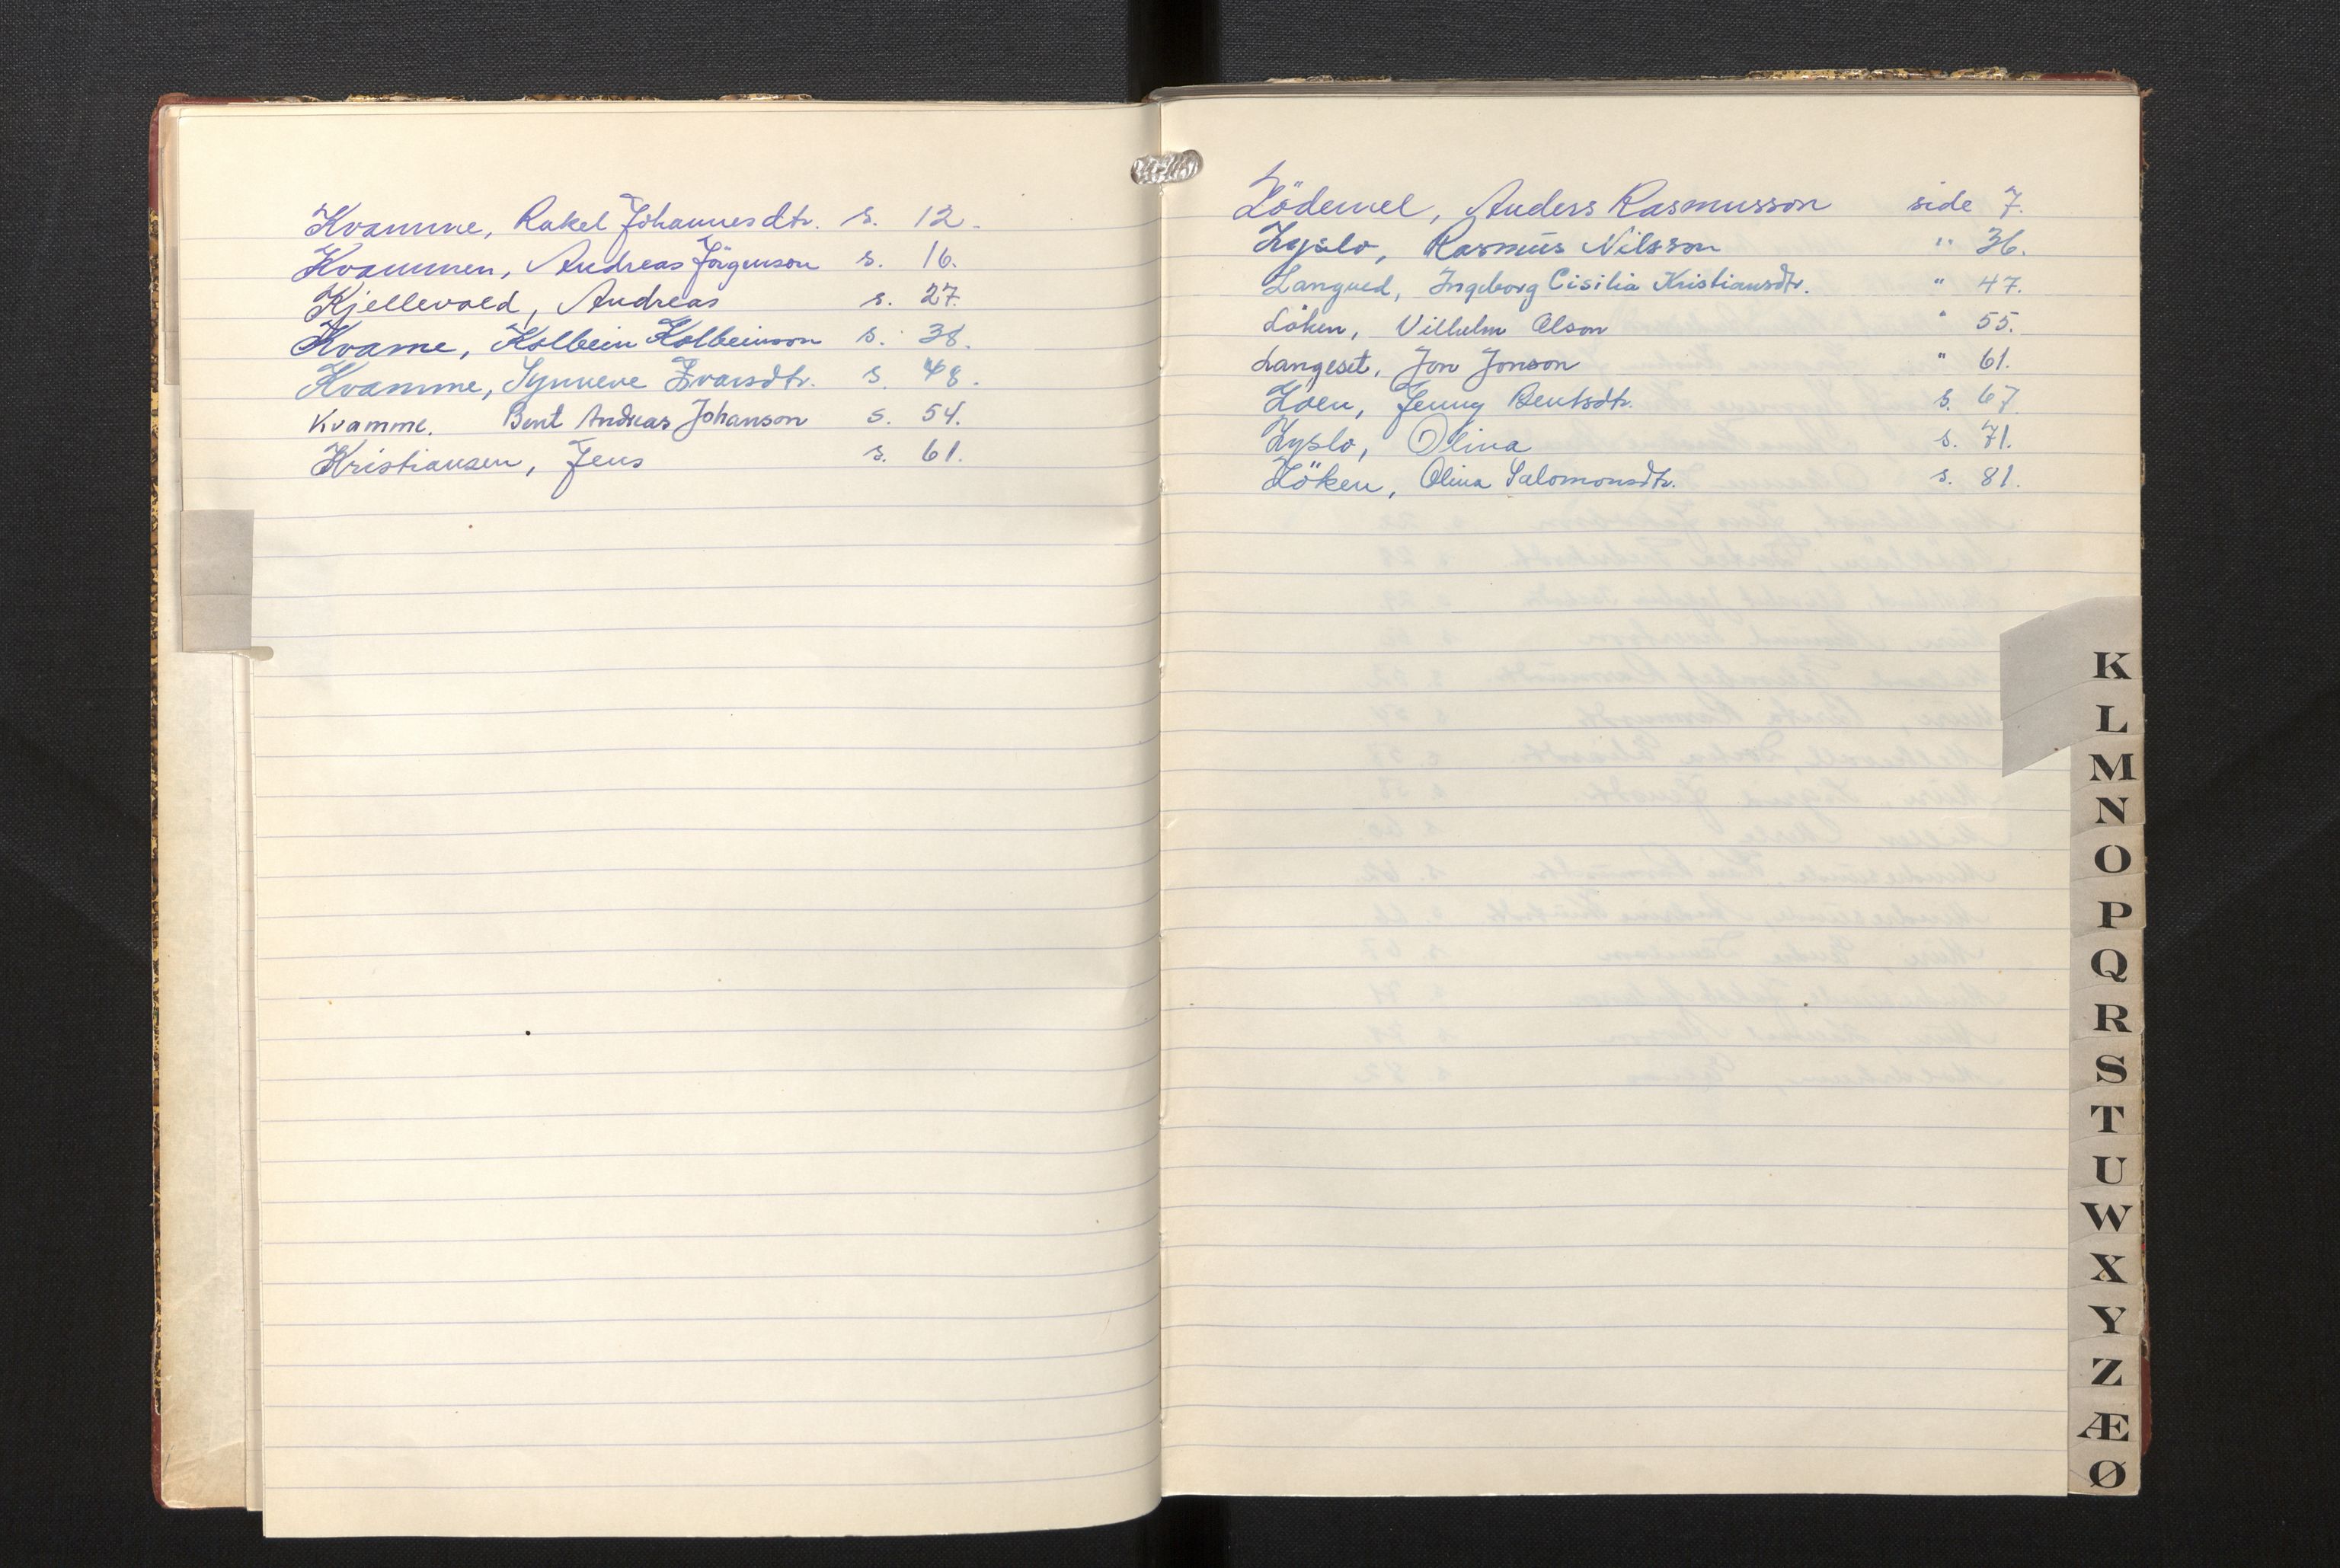 Kvamme, Rakel Johannesdtr. s. 12.
Kvammen, Andreas Jörgenson s. 16.
Kjellevold, Andreas s. 27.
Kvame, Kolbein Kolbeinson s. 38.
Kvamme, Synneve Ivarsdtr. s. 48.
Kvamme. Bent Andreas Johanson s. 54.
Kristiansen, Jens s. 61.
Lödemel, Anders Rasmusson side 7.
Lyslo, Rasmus Nilsson " 36.
Langved, Ingeborg Cisilia Kristiansdtr. " 47.
Löken, Vilhelm Olson " 55.
Langeset, Jon Jonson " 61.
Loen, Jenny Bentsdtr. s. 67
Lyslo, Olina s. 71.
Löken, Olina Salomonsdtr. s. 81.
K
L
M
N
O
P
Q
R
S
T
U
W
X
Y
Z
Æ
Ø